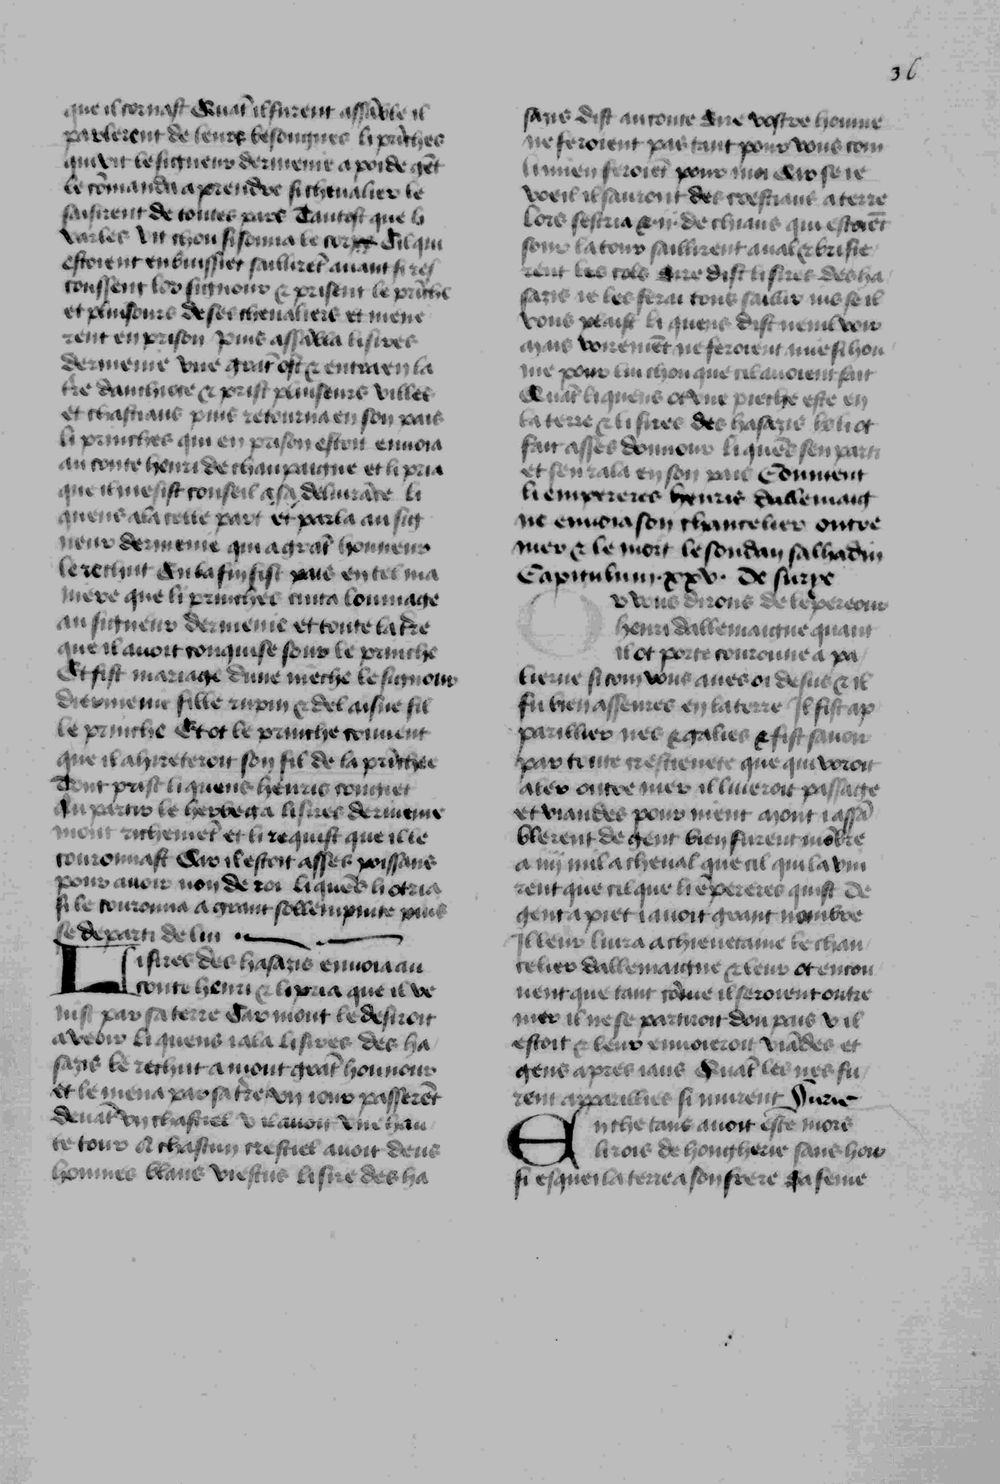 36
que il cornast Quāt il furent assāble il
parlerent de leurs besoingnes li prīches
qui vit le signeur dermenie a poi de gēt
le cōmanda a prendre si chevalier le
saisirent de toutes pars Tantost que li
varles vit chou si sonna le cor Cil qui
estoient enbuissiet saillirēt avant si res
coussent lor signour & prisent le prīche
et pluisours de ses chevaliers et mene
rent en prison Puis assābla li sires
dermenie une grāt ost & entra en la
tre danthioce & prist pluiseurs villes
et chastiaus puis retourna en son pais
li prinches qui en prison estoit envoia
au conte henri de chanpaigne et li pria
que il mesist conseil a sa delivrāce li
quens ala celle part et parla au sig
neur dermenie qui a grāt honneur
le rechut En la fin fist pais en tel ma
niere que li prinches cuita lommage
au signeur dermenie et toute la tre
que il avoit conquise sour le prinche
Et fist mariage dune nieche le signour
diermenie fille rupin & del aisne fil
le prinche Et ot le prinche convent
que il ahireteroit son fil de la prīchee
Dont prist li quens henris congiet
Au partir le herbega li sires dermenie
mout richemēt et li requist que il le
couronnast Car il estoit asses poissans
pour avoir non de roi li quēs li otria
si le couronna a grant sollempnite puis
se departi de lui
Li sires des hasasis envoia au
conte henri & li pria que il ve
nist par sa terre Car mont le desiroit
a veoir li quens i ala li sires des ha
sasis le rechut a mont grāt honnour
et le mena par sa tre Un iour passerēt
devāt un chastiel u il avoit une hau
te tour A chascun crestiel avoit deus
hommes blans viestus li sire des ha
sasis dist au conte Sire vostre homme
ne feroient pas tant pour vous com
li mien feroiēt pour moi Car se ie
voeil il sauront des crestiaus a terre
Lors sescria & .ij. de chiaus qui estoiēt
sour la tour saillirent aval & brisie
rent les cols Sire dist li sires des ha
sasis ie les ferai tous saillir ius se il
vous plaist li quens dist nenil voir
Mais voiremēt ne feroient mie si hou
me pour lui chou que cil avoient fait
Quāt li quens ot une pieche este en
la terre & li sires des hasasis li ot
fait asses donnour li quēs sen parti
et sen rala en son pais Comment
li empereres henris dallemaig
ne envoia son chancelier outre
mer & le mort le soudan salhadin
Capitulum .xxv. De surye
r vous dirons de lepereour
henri dallemaigne quant
il ot porte couronne a pa
lierne si com vous aves oi desus & il
fu bien asseures en la terre Il fist ap
parillier nes & galies & fist savoir
par toute crestienete que qui voroit
aler outre mer il liveroit passage
et viandes pour nient Mont i assā
blerent de gent bien furent nōbre
a iiij mil a cheval que cil qui la vin
rent que cil que li ēpereres quist De
gent a piet i avoit grant nombre
Il leur livra a chievetaine le chan
celier dallemaigne & leur ot encou
vent que tant cōme il seroient outre
mer il ne se partiroit dou pais u il
estoit & leur envoieroit viādes et
gens apres iaus Quāt les nes fu
rent apparillies si murent Surie
En che tans avoit este mors
li rois de hongherie sans hoir
si eskei la terre a son frere Sa feme